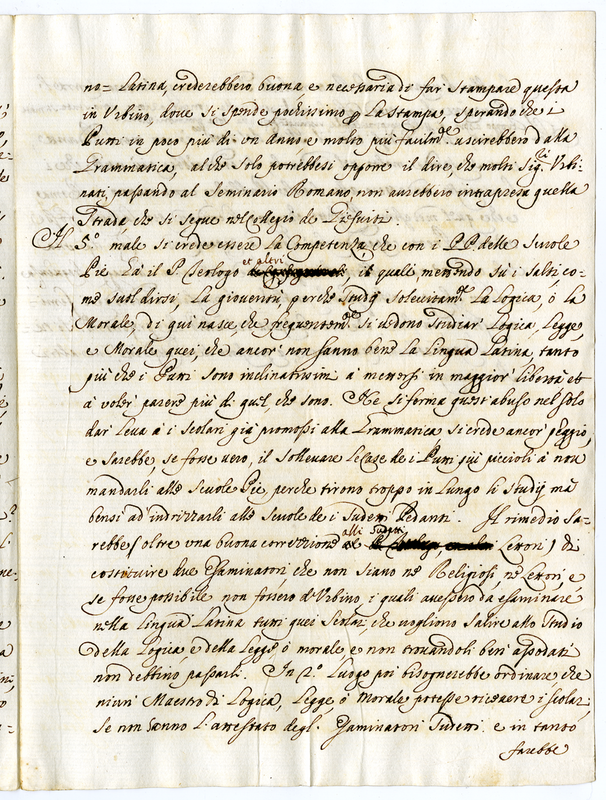 no= Latina, crederebbero buona e necessaria di far stampare questa
in Urbino, dove si spende pochissimo p la stampa, sperando che i
Putti in poco più di un Anno e molto più facilmte uscirebbero dalla
Grammatica, al che solo potrebbesi opporre il dire, che molti Sigri Urbi-
nati passando al Seminario Romano, non avrebbero intrapresa quella
Strada, che si segue nel Collegio de Giesuiti.
A 5.o male si crede essere la Competenza, che con i P.P. delle Scuole
Pie hà il P. Teologo et alcvi i quali, mettendo sù i salti, co-
me suol dirsi, la gioventù perche studij sollecitamte la Logica, ò la
Morale, di quì nasce, che frequentemte si vedono studiar Logica, Legge,
e Morale quei, che ancor' non sanno bene la lingua Latina, tanto
più che i Putti sono inclinatissimi à mettersi in maggior' libertà et
à voler' parere più di quel che sono. Nè si forma quest'abuso nel solo
dar' leva à i scolari già promossi alla Grammatica si crede ancor' peggio,
e sarebbe, se fosse vero, il sollevare le Case de i Putti più piccioli à non
mandarli alle Scuole Pie, perche tirono troppo in lungo li studij mà
bensì ad indrizzarli alle Scuole de i Sudetti Pedanti. Il rimedio sa-
rebbe (oltre una buona correzzione alli Sudetti Lettori) di
costituire due Esaminatori, che non siano nè Religiosi, nè Lettori, e
se fosse possibile non fossero d'Urbino i quali avessero da esaminare
nella lingua Latina tutti quei Scolari, che vogliono salire allo Studio
della Logica, e della Legge ò morale e non trovandoli ben' assodati
non debbino passarli. In 2.o luogo poi bisognerebbe ordinare che
niun' Maestro di Logica, Legge ò Morale potesse ricevere i scolari
se non hanno l'attestato degl' Esaminatori Sudetti e in tanto
farebbe